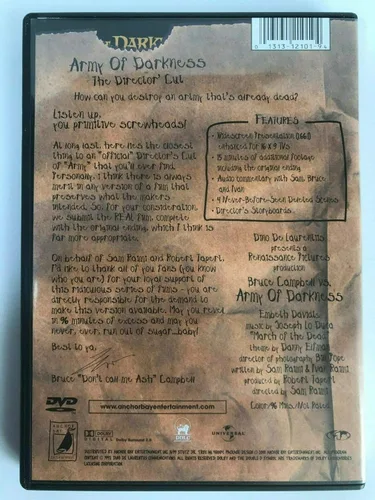 DARK
6 1313-12101-9 4
Army Of Darkness
The Director' Cut
How can you destroy an army that's already dead?
Listen up,
you primitive screwheads!
At long last, here he's the closest
thing to an "official" Director's Cut
of "Army" that you'll ever find.
Personally, I think there is always
merit in any version of a film that
preserves what the makers
intended. So, for your consideration,
we submit the REAL film, complete
with the original ending, which I think is
far more appropriate.
On behalf of Sam Raimi and Robert Tapert,
I'd like to thank all of you fans (you know
who you are) for your loyal support of
this ridiculous series of films - you are
directly responsible for the demand to
make this version available. May you revel
in 96 minutes of excess and may you
never, ever, run out of sugar...baby!
Best to ya,
Bruce "Don't call me Ash" Campbell
Features
• Widescreen Presentation (1.66:1)
enhanced for 16 x 9 TVs
• 15 minutes of additional footage
including the original ending
• Audio commentary with Sam, Bruce
and Ivan
• 4 Never-Before-Seen Deleted Scenes
• Director's Storyboards
Dino De Laurentiis
presents a
Renaissance Pictures
production
Bruce Campbell vs.
Army Of Darkness
Embeth Davidtz
music by Joseph Lo Duca
"March of the Dead"
theme by Danny Elfman
director of photography Bill Pope
written by Sam Raimi & Ivan Raimi
produced by Robert Tapert
directed by Sam Raimi
Color/96 Mins./Not Rated
DVD
www.anchorbayentertainment.com
DOLBY
DIGITAL
Dolby Surround 2.0
UNIVERSAL